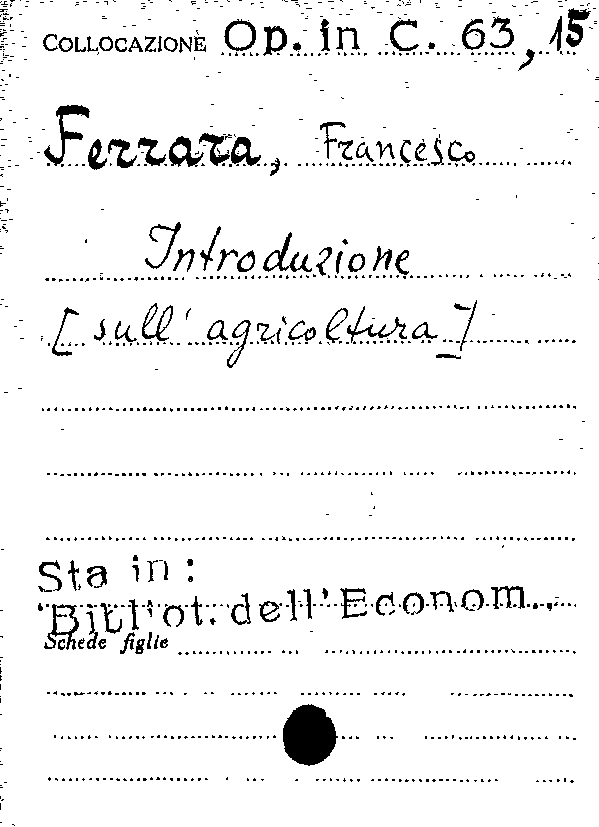 COLLOCAZIONE Op. in C. 63,15
Ferrara, Francesco
Introduzione
[sull' agricoltura]
Sta in:
Bibliot. dell'Econom..
Schede figlie